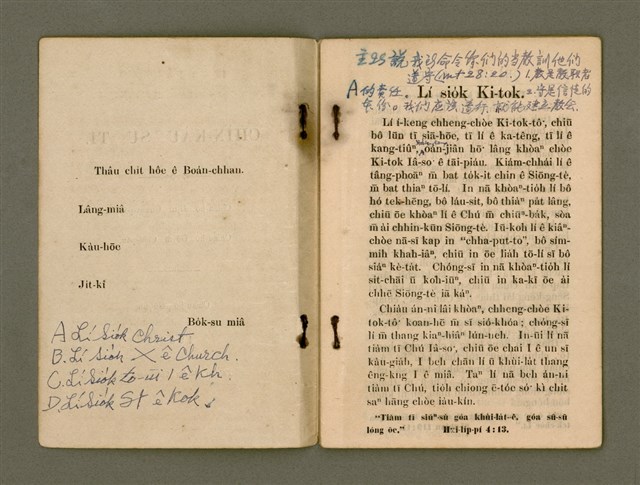 Thâu chit hôc ê Boán-chhan.
Lâng-miâ
Kàu-hōe
Ji̍t-kî
Bo̍k-su miâ
A Lí Sio̍k Christ
B. Lí Sio̍k X ê Church.
C. Lí Sio̍k
D. Lí Sio̍k St ê Kok.
主 說 我 命令你們的当教訓他們
遵守 (mt 28:20.)
A 的責任。
Lí sio̍k Ki-tok.
Lí í-keng chheng-chòe Ki-tok-tô͘, chiū
bô lūn tī siā-hōe, tī lí ê ka-têng, tī lí ê
kang-tiûⁿ, oân-jiân hō͘ lâng khòaⁿ chòe
Ki-tok Iâ-so͘ ê tāi-piáu. Kiám-chhái lí ê
tâng-phoāⁿ m̄ bat to̍k-it chin ê Siōng-tè,
m̄ bat thiaⁿ tō-lí. In nā khòaⁿ-tio̍h lí bô
hó tek-hēng, bô láu-si̍t, bô thiàⁿ pa̍t lâng,
chiū ōe khòaⁿ lí ê Chú m̄ chiūⁿ-ba̍k, sòa
m̄ ài chhin-kūn Siōng-tè. Iū-koh lí ê kiâⁿ-
chòe nā-sī kap in “chha-put-to”, bô sím-
mih khah-iâⁿ, chiū in ōe lia̍h tō-lí sī bô
siáⁿ kè-ta̍t. Chóng-sī in nā khòaⁿ-tio̍h lí
si̍t-chāi ū koh-iūⁿ, chiū in kiáⁿ ōe ài
chhē Siōng-tè iā káⁿ.
Chiàu án-ni lâi khòaⁿ, chheng-chòe Ki-
tok-tô͘ koan-hē m̄ sī sió-khóa; chóng-sī
lí m̄ thang kiaⁿ-hiâⁿ lún-neh. In-ūi lí nā
tiàm tī Chú Iâ-so͘, chiū ōe chai I ê un sī
kàu-gia̍h, I beh chān lí ū khùi-la̍t thang
êng-kng I ê miâ. Taⁿ lí nā beh án-ni
tiàm tī Chú, tio̍h chiong ē-tóe só͘ kì chit
saⁿ hāng chòe iàu-kín.
“Tiàm tī siúⁿ-sù góa khùi-la̍t-ê, góa sū-sū
lóng ōe.” Hui-li̍p-pí 4:13.